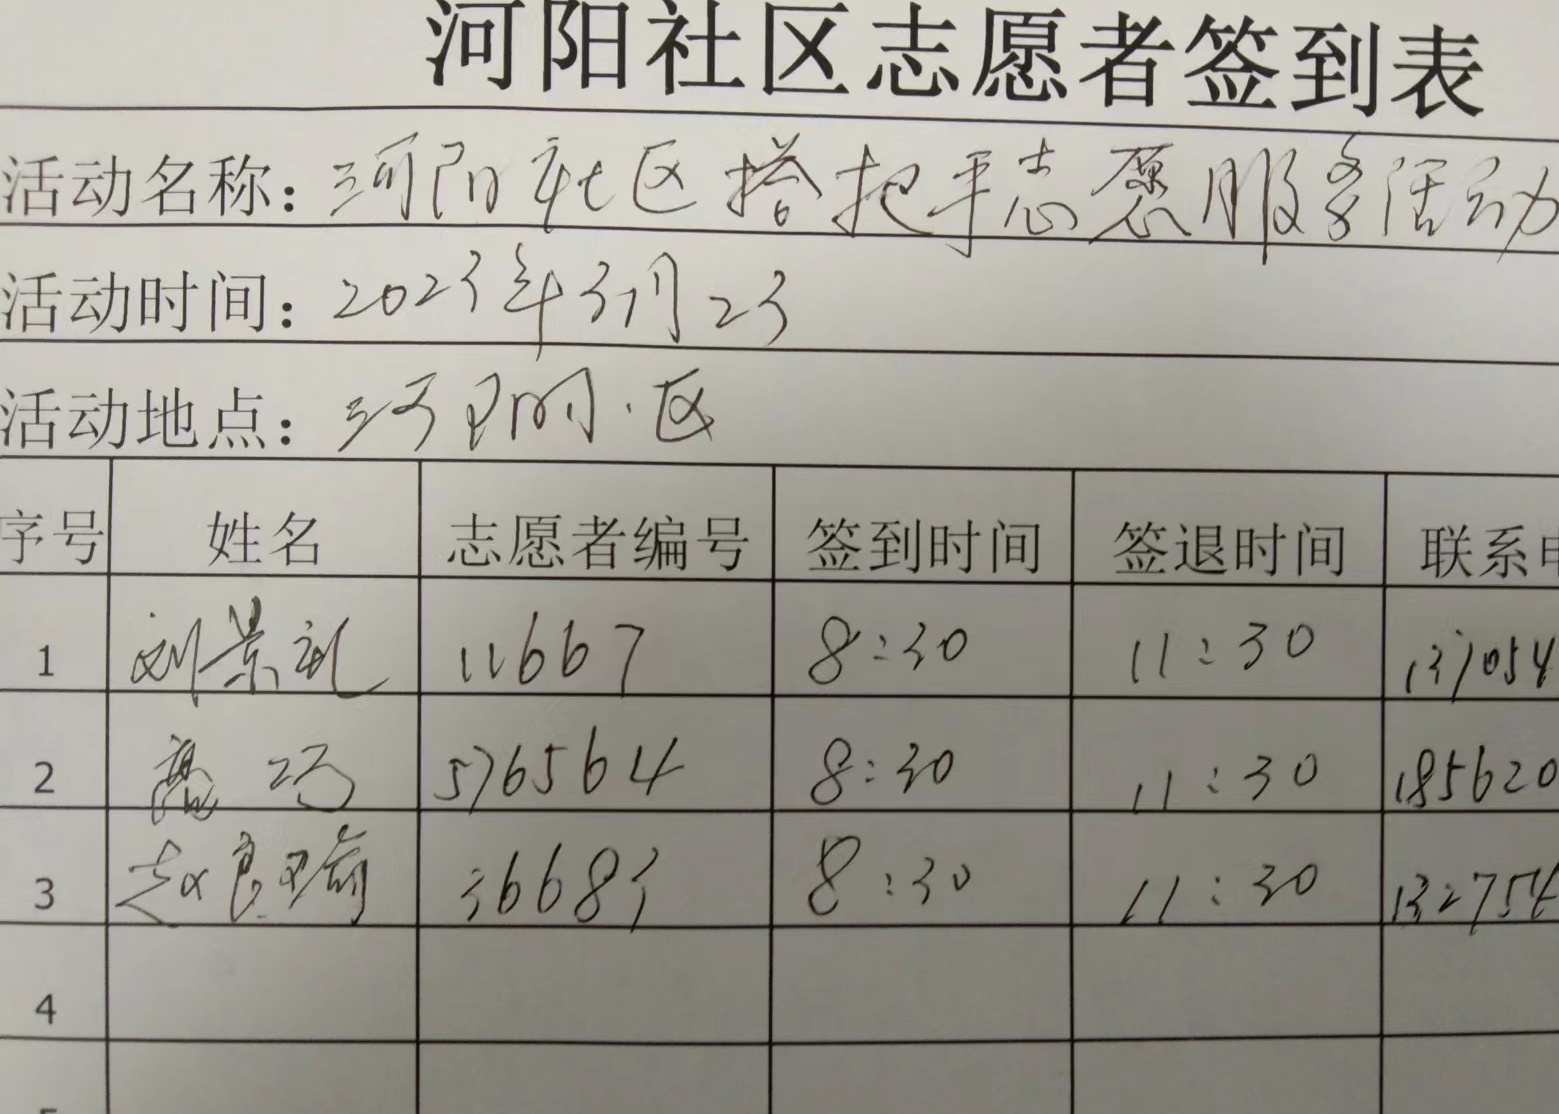 河阳社区志愿者签到表
活动名称：河阳社区搭把手志愿服务活动
活动时间：2023年3月23
活动地点：河阳·区
序号 姓名 志愿者编号 签到时间 签退时间 联系电
1 刘景礼 11667 8:30 11:30 137054
2 高巧 5765564 8:30 11:30 185620
3 赵良瑜 36683 8:30 11:30 132754
4